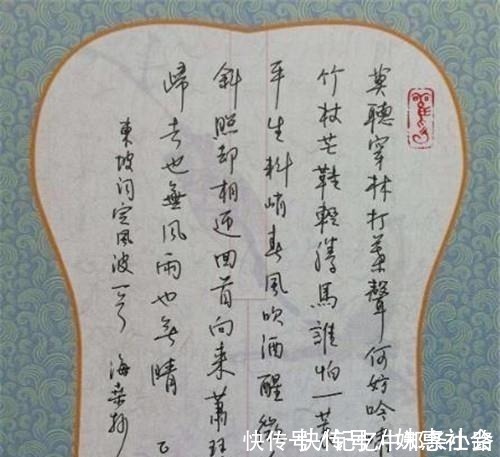 莫聽穿林打葉聲何妨吟
竹杖芒鞋輕勝馬誰怕一
平生料峭春風吹酒醒微
斜照却相迎回首向来蕭
歸去也無風雨也無晴
東坡词定風波一首 海棠抄
快传号